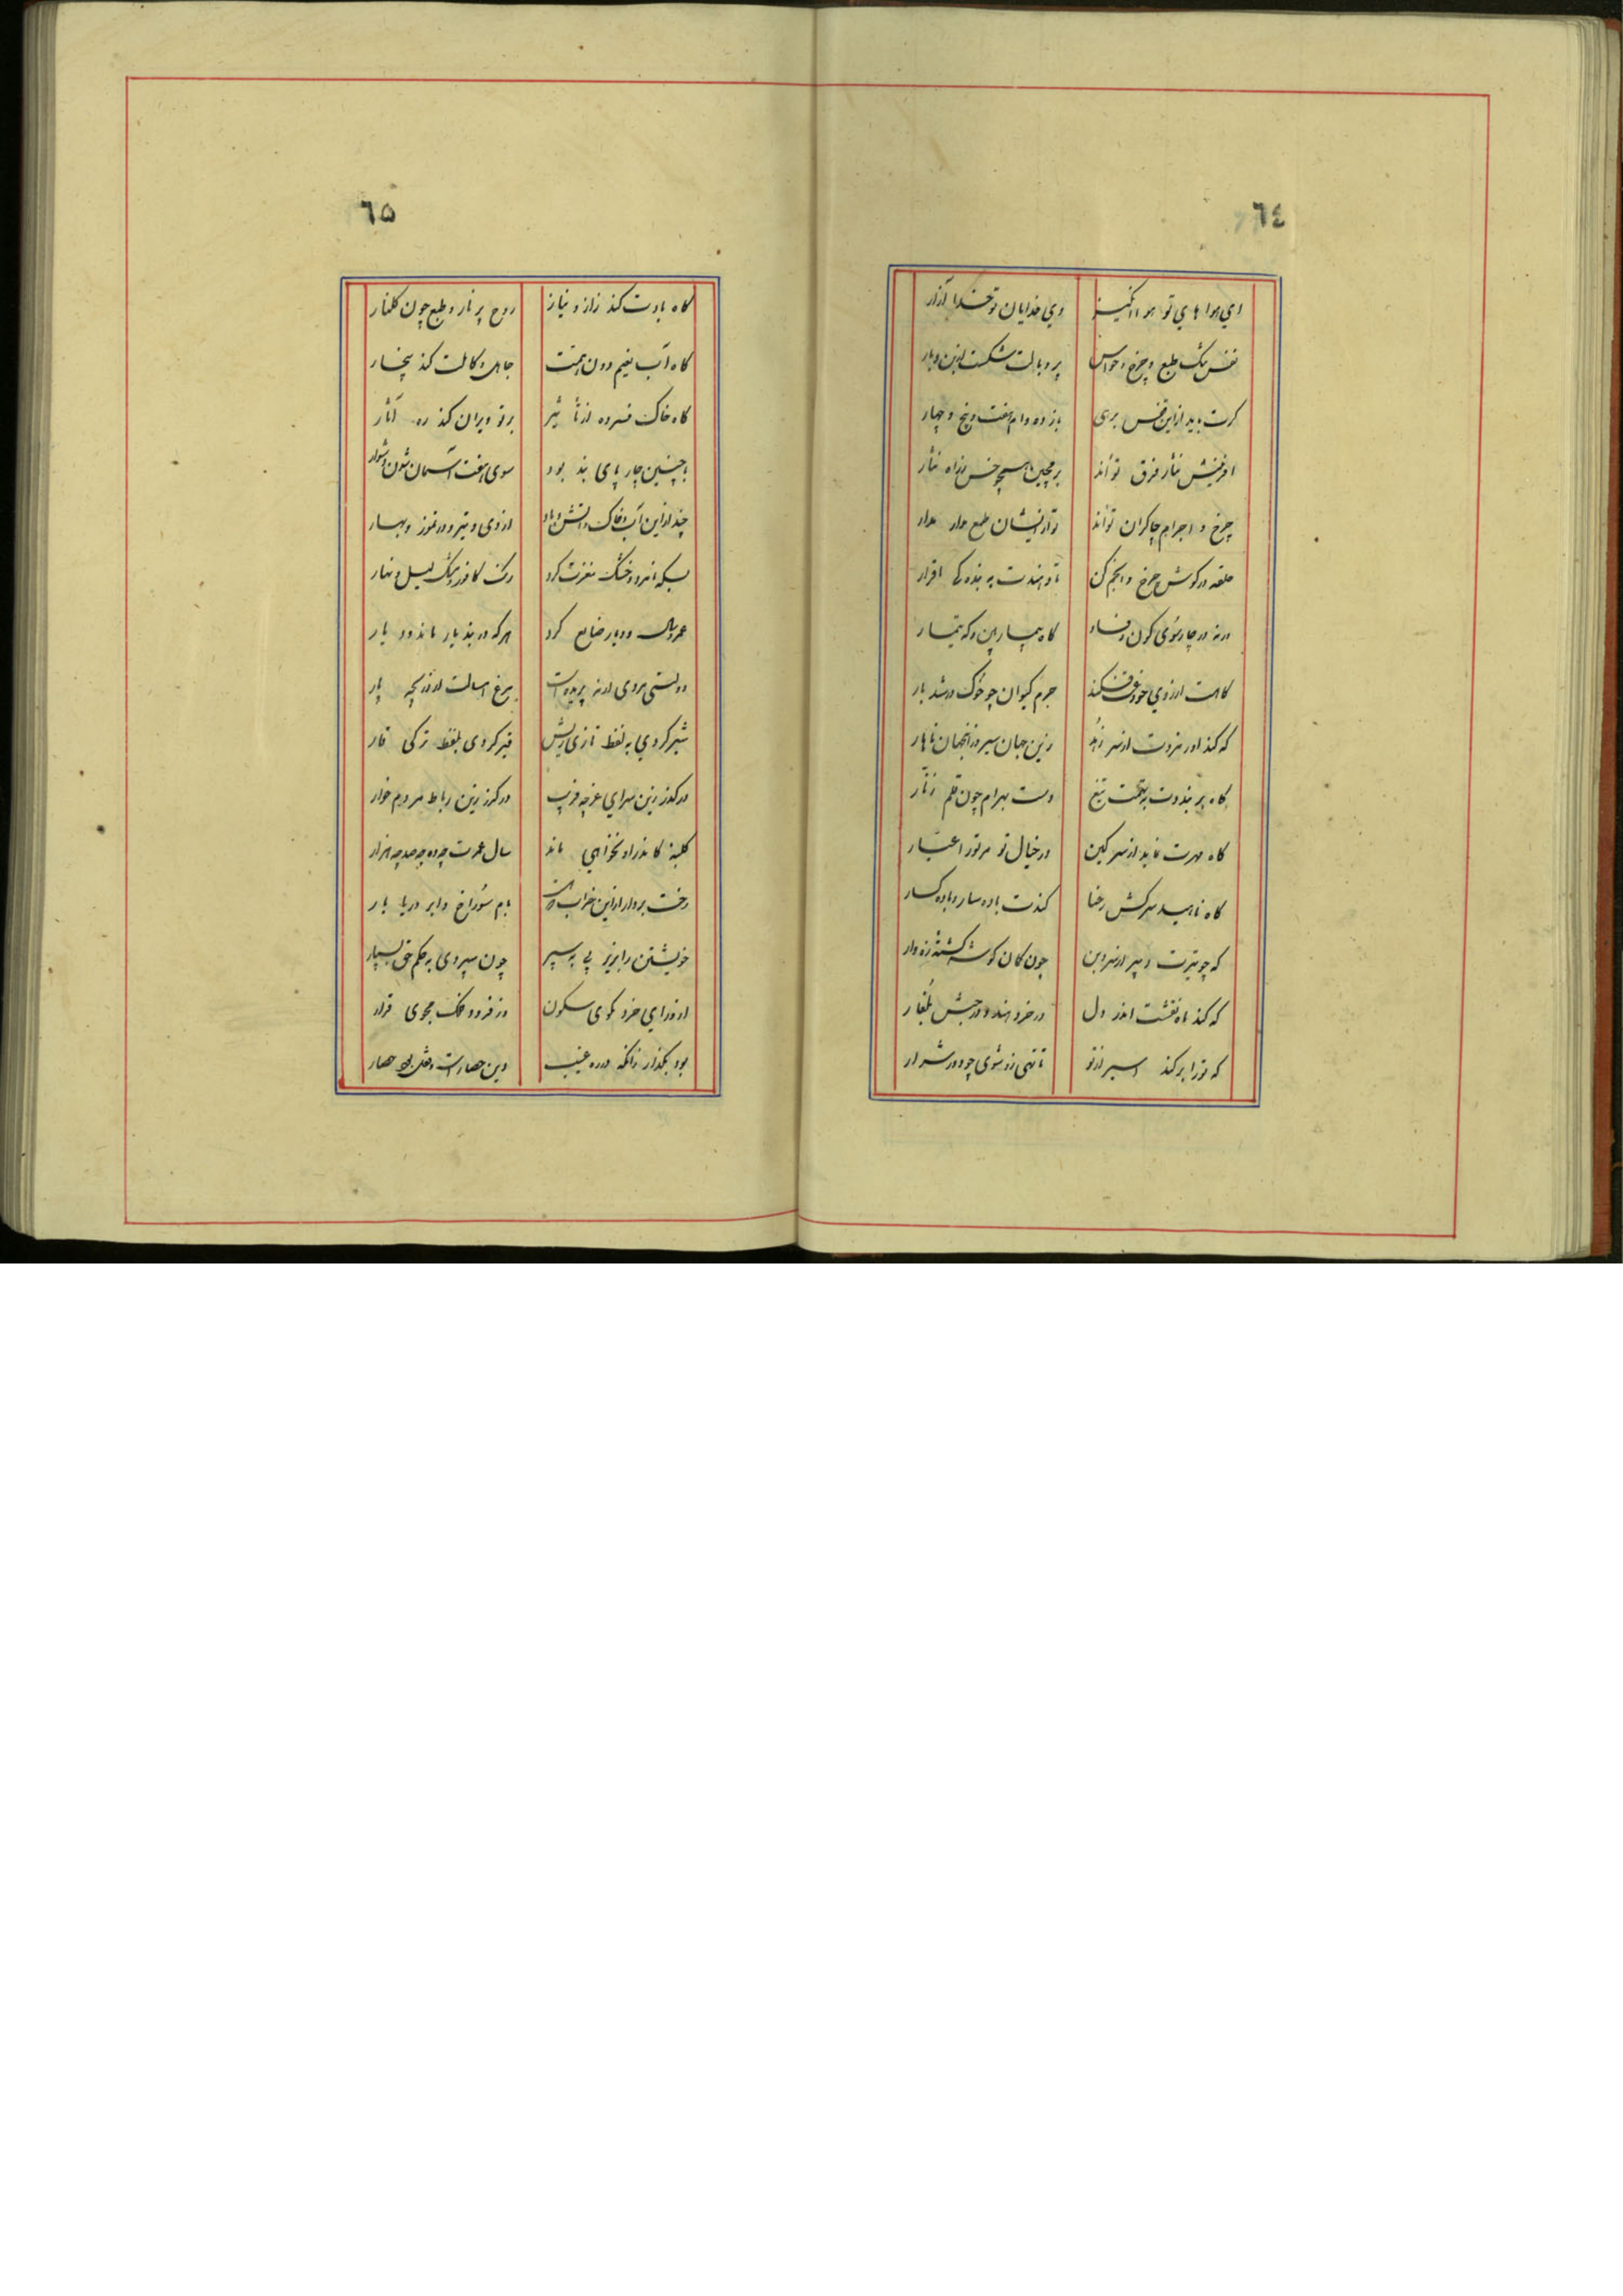 ٦٤
ای هوا های تو هوا انگیز وی خدایان تو خدا آزار
قفس تنگ طبع و چرخ و حواس پر و بالت شکست از بن و بار
کرت باید ازاین قفس برهی باز ده وام هفت و پنج و چهار
افرینش نثار فرق تواند بر مچین همچو خس ز راه نثار
چرخ و اجرام چاکران تواند تو از ایشان طمع مدار مدار
حلقه در کوش چرخ و انجم کن تا دهندت به بنده کی اقرار
ورنه در چارسوی کون و فساد کاه بیمار بین و که تیمار
کاهت ارزوی حرفت فکند جرم کیوان چو خوک در شد یار
که کند اورمزدت از سر زهد زین جهان سیر و زانجهان ناهار
کاه پر بنددت به تهمت تیغ دست بهرام چون قلم زنار
کاه مهرت نماید از سر کین در خیال تو مر تورا غیار
کاه ناهید سرکش رعنا کندت باده سار و باده کسار
که چو تیرت دبیر از سر و بن چون کمان کوشه کشته زه وار
که کند ماه نقشت اندر دل در خزر هند و در حبش بلغار
که تورا بر کند اسیر از تو تا تهی زو شوی چو دود شرار
٦٥
کاه بادت کند ز از و نیاز روح پر نار و طبع چون کلنار
کاه آب لئیم دون همت جاهل و کاهلت کند بیخار
کاه خاک فسرده از تأثیر بر تو ویران کند ره آثار
با چنین چار پای بند بود سوی هفت آسمان شدن دشوار
چند ازاین آب و خاک و آتش و باد از دی و تیر و در تموز و بهار
بسکه نامرد و خشک مغزت کرد رنک کافور و مشک لیل و نهار
عمر و سال و دیار ضایع کرد هرکه در بند یار ماند و دیار
دولتی مردی ارنه پریده است مرغ امسالت از دریچه پار
شیر کردی به لفظ تازی ریش قیر کردی بلفظ ترکی قار
در کذر زین سرای غرچه فریب در کذر زین رباط مردم خوار
کلبهٔ کاندر او نخواهی ماند سال عمرت چه ده چه صد چه هزار
رخت بردار ازاین خراب که هست بام سوراخ و ابر دریا بار
خویشتن را بزیر پی بسپر چون سپردی به حکم حق بسپار
از ورای خرد مکوی سکون وز فرود فلک مجوی قرار
بود بکذار زانکه در ره غیب دین حصار است و مثل بود حصار